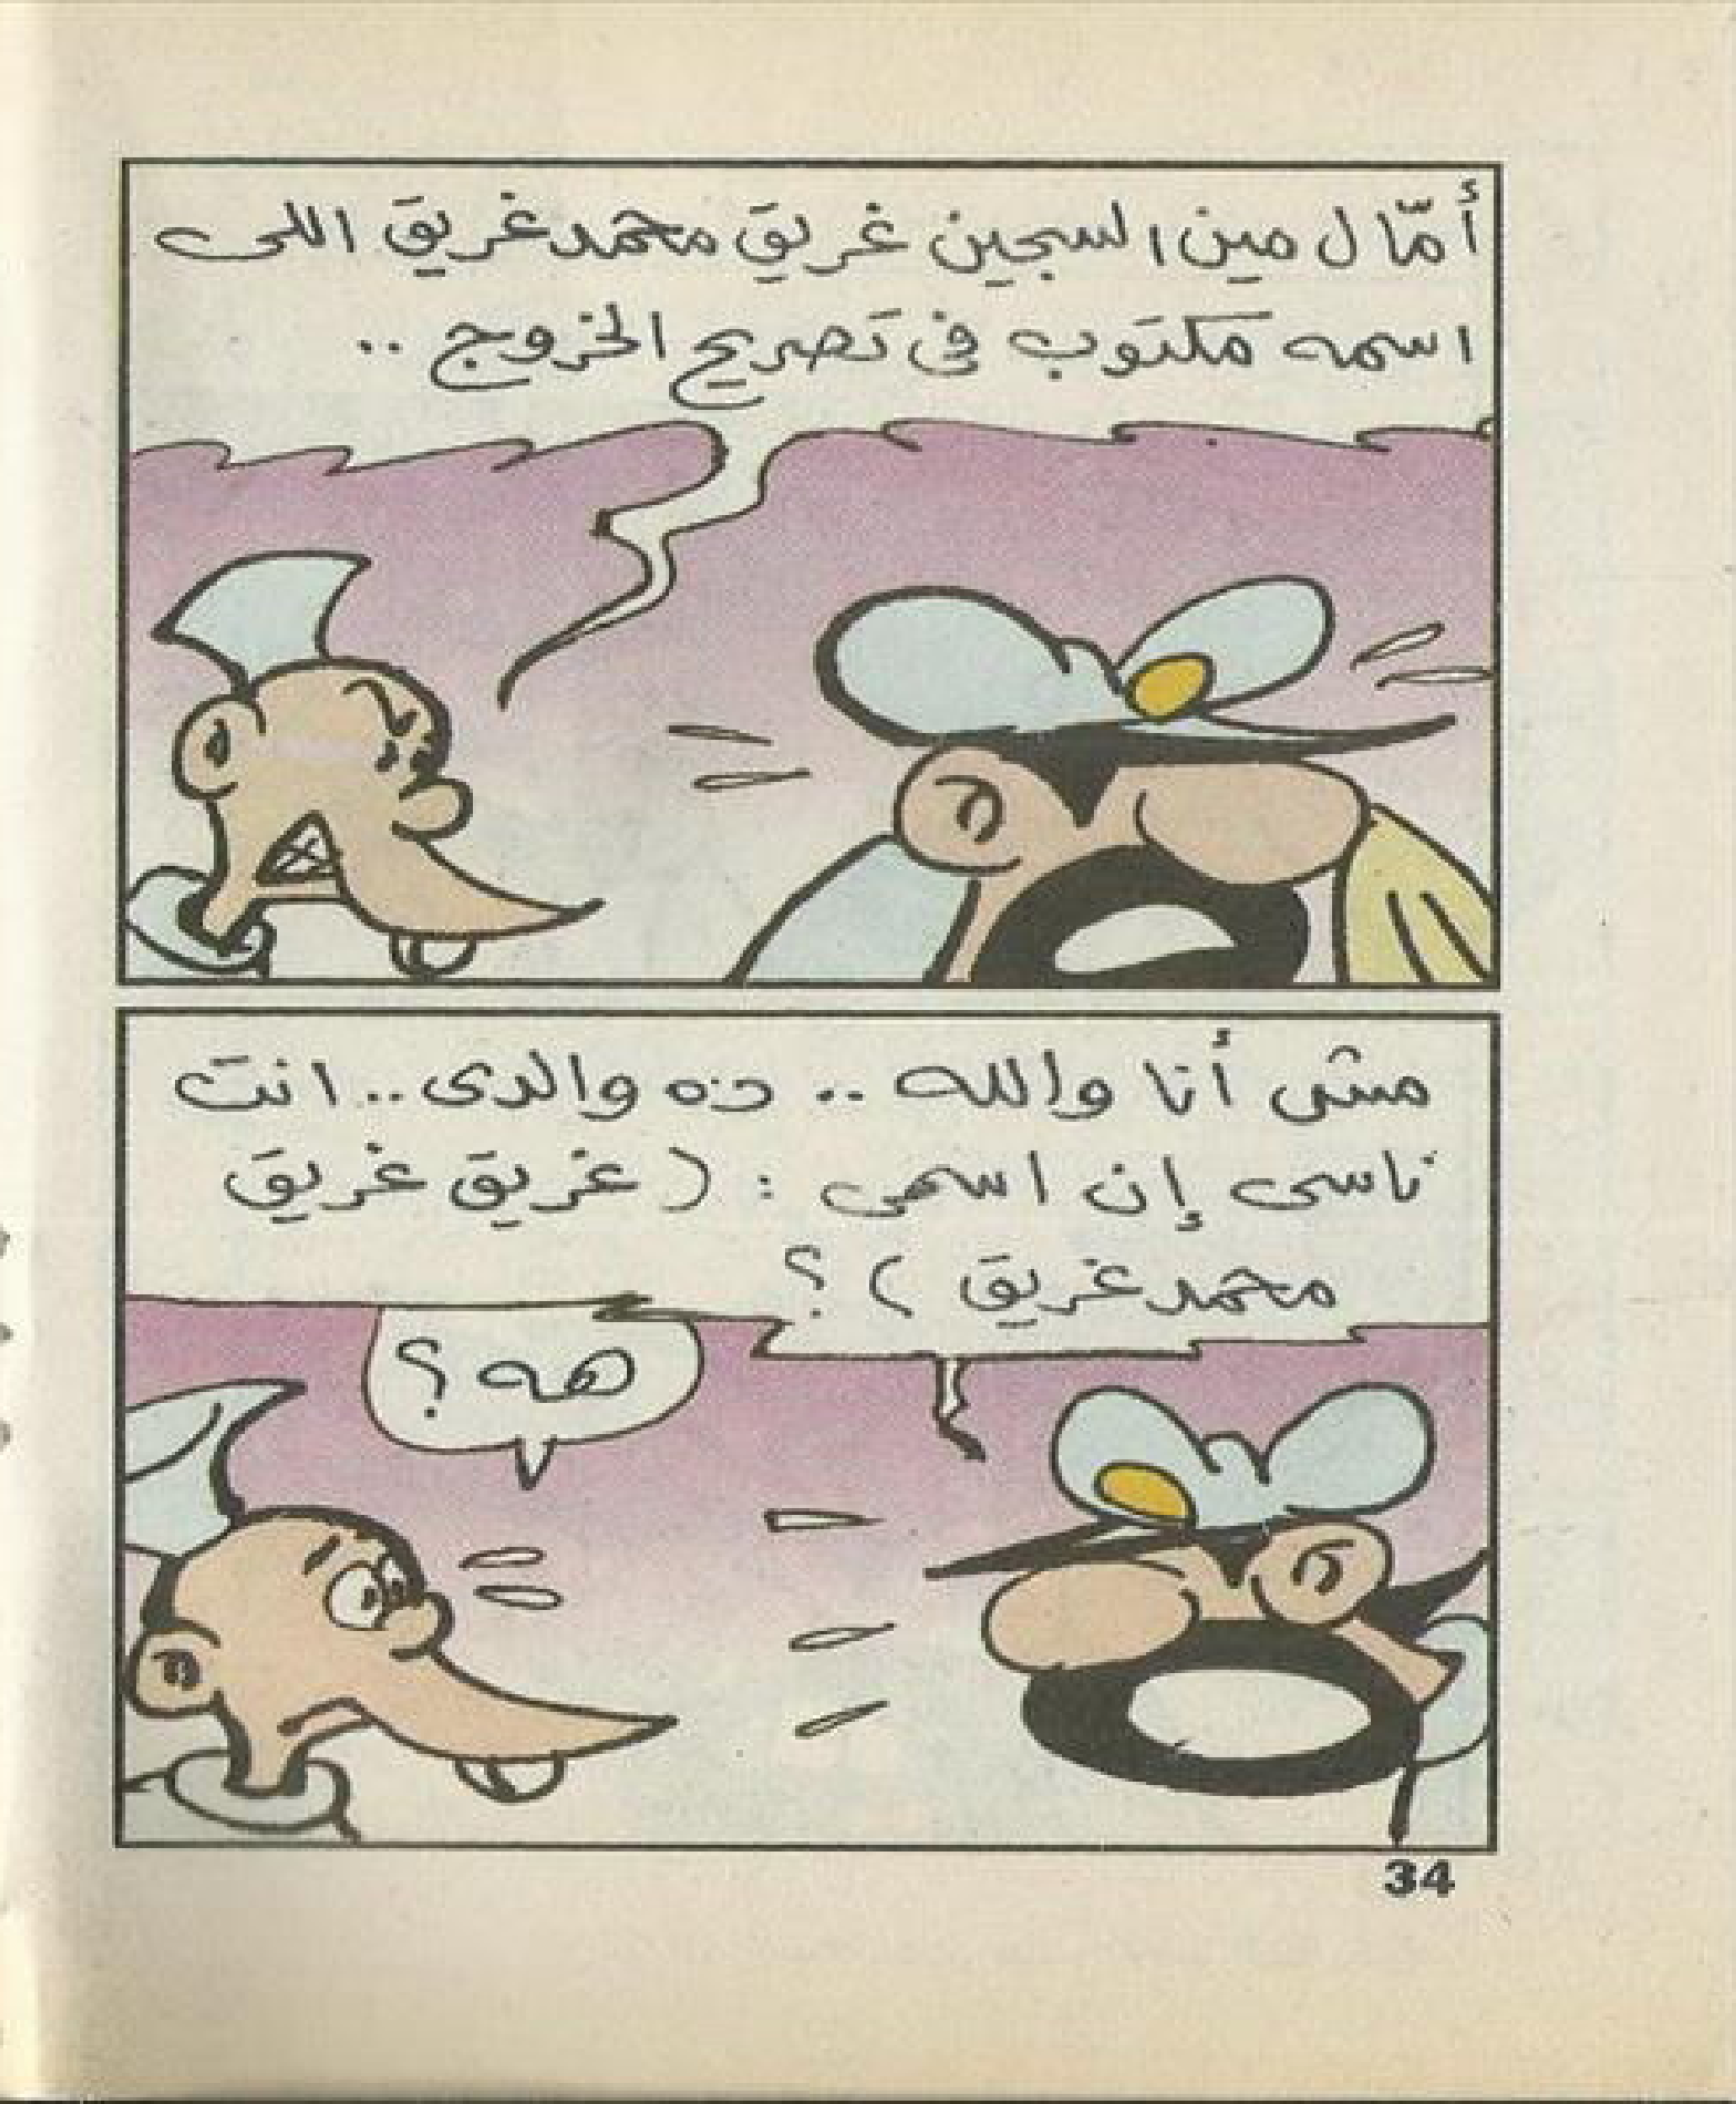 أمّال مين السجين غريق محمد غريق اللى
اسمه مكتوب فى تصريح الخروج ..
مش أنا والله .. ده والدى .. انت
ناسى إن اسمى : ( غريق غريق
محمد غريق ) ؟
هه ؟
34